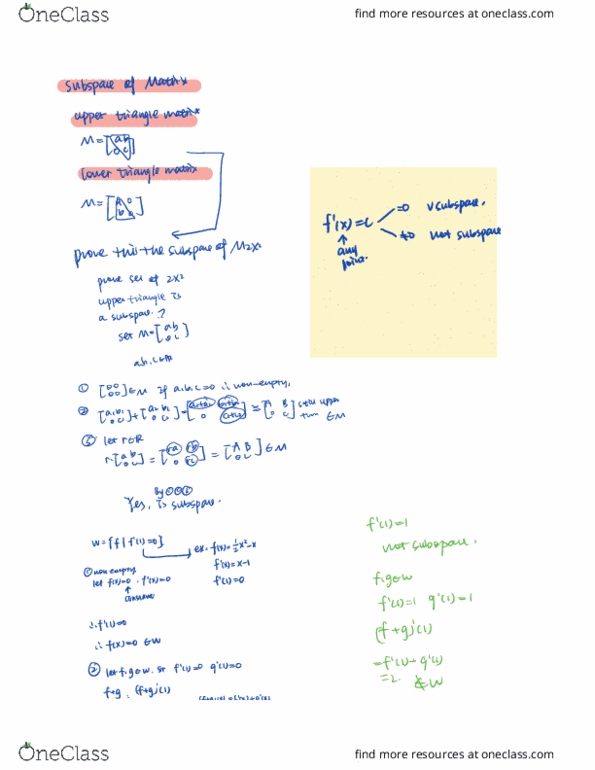 OneClass
find more resources at oneclass.com
subspace of Matrix
upper triangle matrix
M = [a b
0 c]
lower triangle matrix
M = [a 0
b c]
prove this the subspace of M2x2
prove set of 2x2
upper triangle is
a subspace?
set M = [a b
0 c]
a,b,c∈R
① [0 0
0 0] ∈ M if a,b,c=0 ∴ non-empty.
② = [A B
0 C] still upper
∈ M
③ let r∈R
r[a b
0 c] = [ra rb
0 rc] = [A B
0 C] ∈ M
By ①②③
Yes, is subspace.
W = {f | f'(1)=0}
ex: f(x)=½x²-x
f'(x)=x-1
f'(1)=0
① non empty
let f(x)=0 . f'(x)=0
↑
constant
∴ f'(1)=0
∴ f(x)=0 ∈W
② let f,g∈W. st f'(1)=0 g'(1)=0
f+g : (f+g)'(1)
f'(x)=c
=0 ∨ subspace.
≠0 not subspace
↑
any
f'(1)=1
not subspace.
f,g∈W
f'(1)=1 g'(1)=1
(f+g)'(1)
=f'(1)+g'(1)
=2. ∉W
OneClass
find more resources at oneclass.com